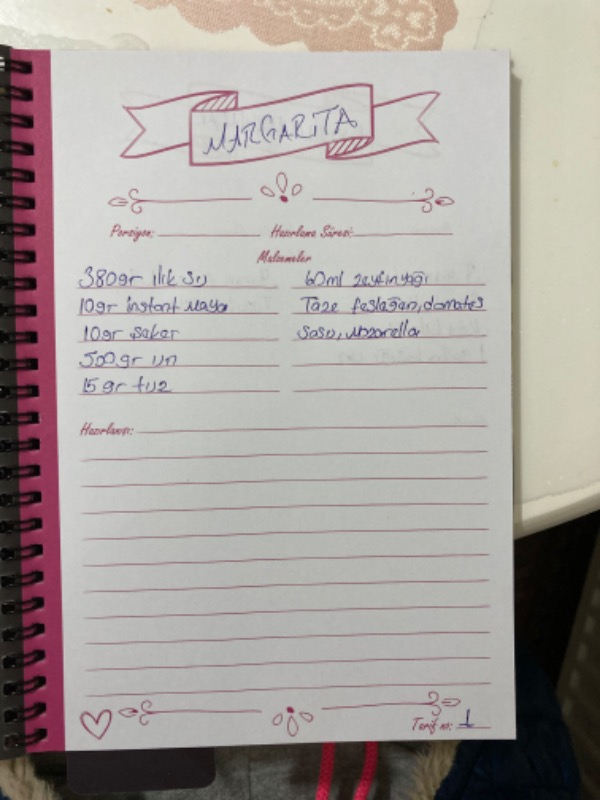 MARGARITA
Porsiyon: Hazırlama Süresi:
Malzemeler
380gr ılık su
10gr instant maya
10gr şeker
500gr un
15 gr tuz
60ml zeytinyağı
Taze fesleğen, domates
sosu, mozarella
Hazırlanışı:
Tarif no: 1